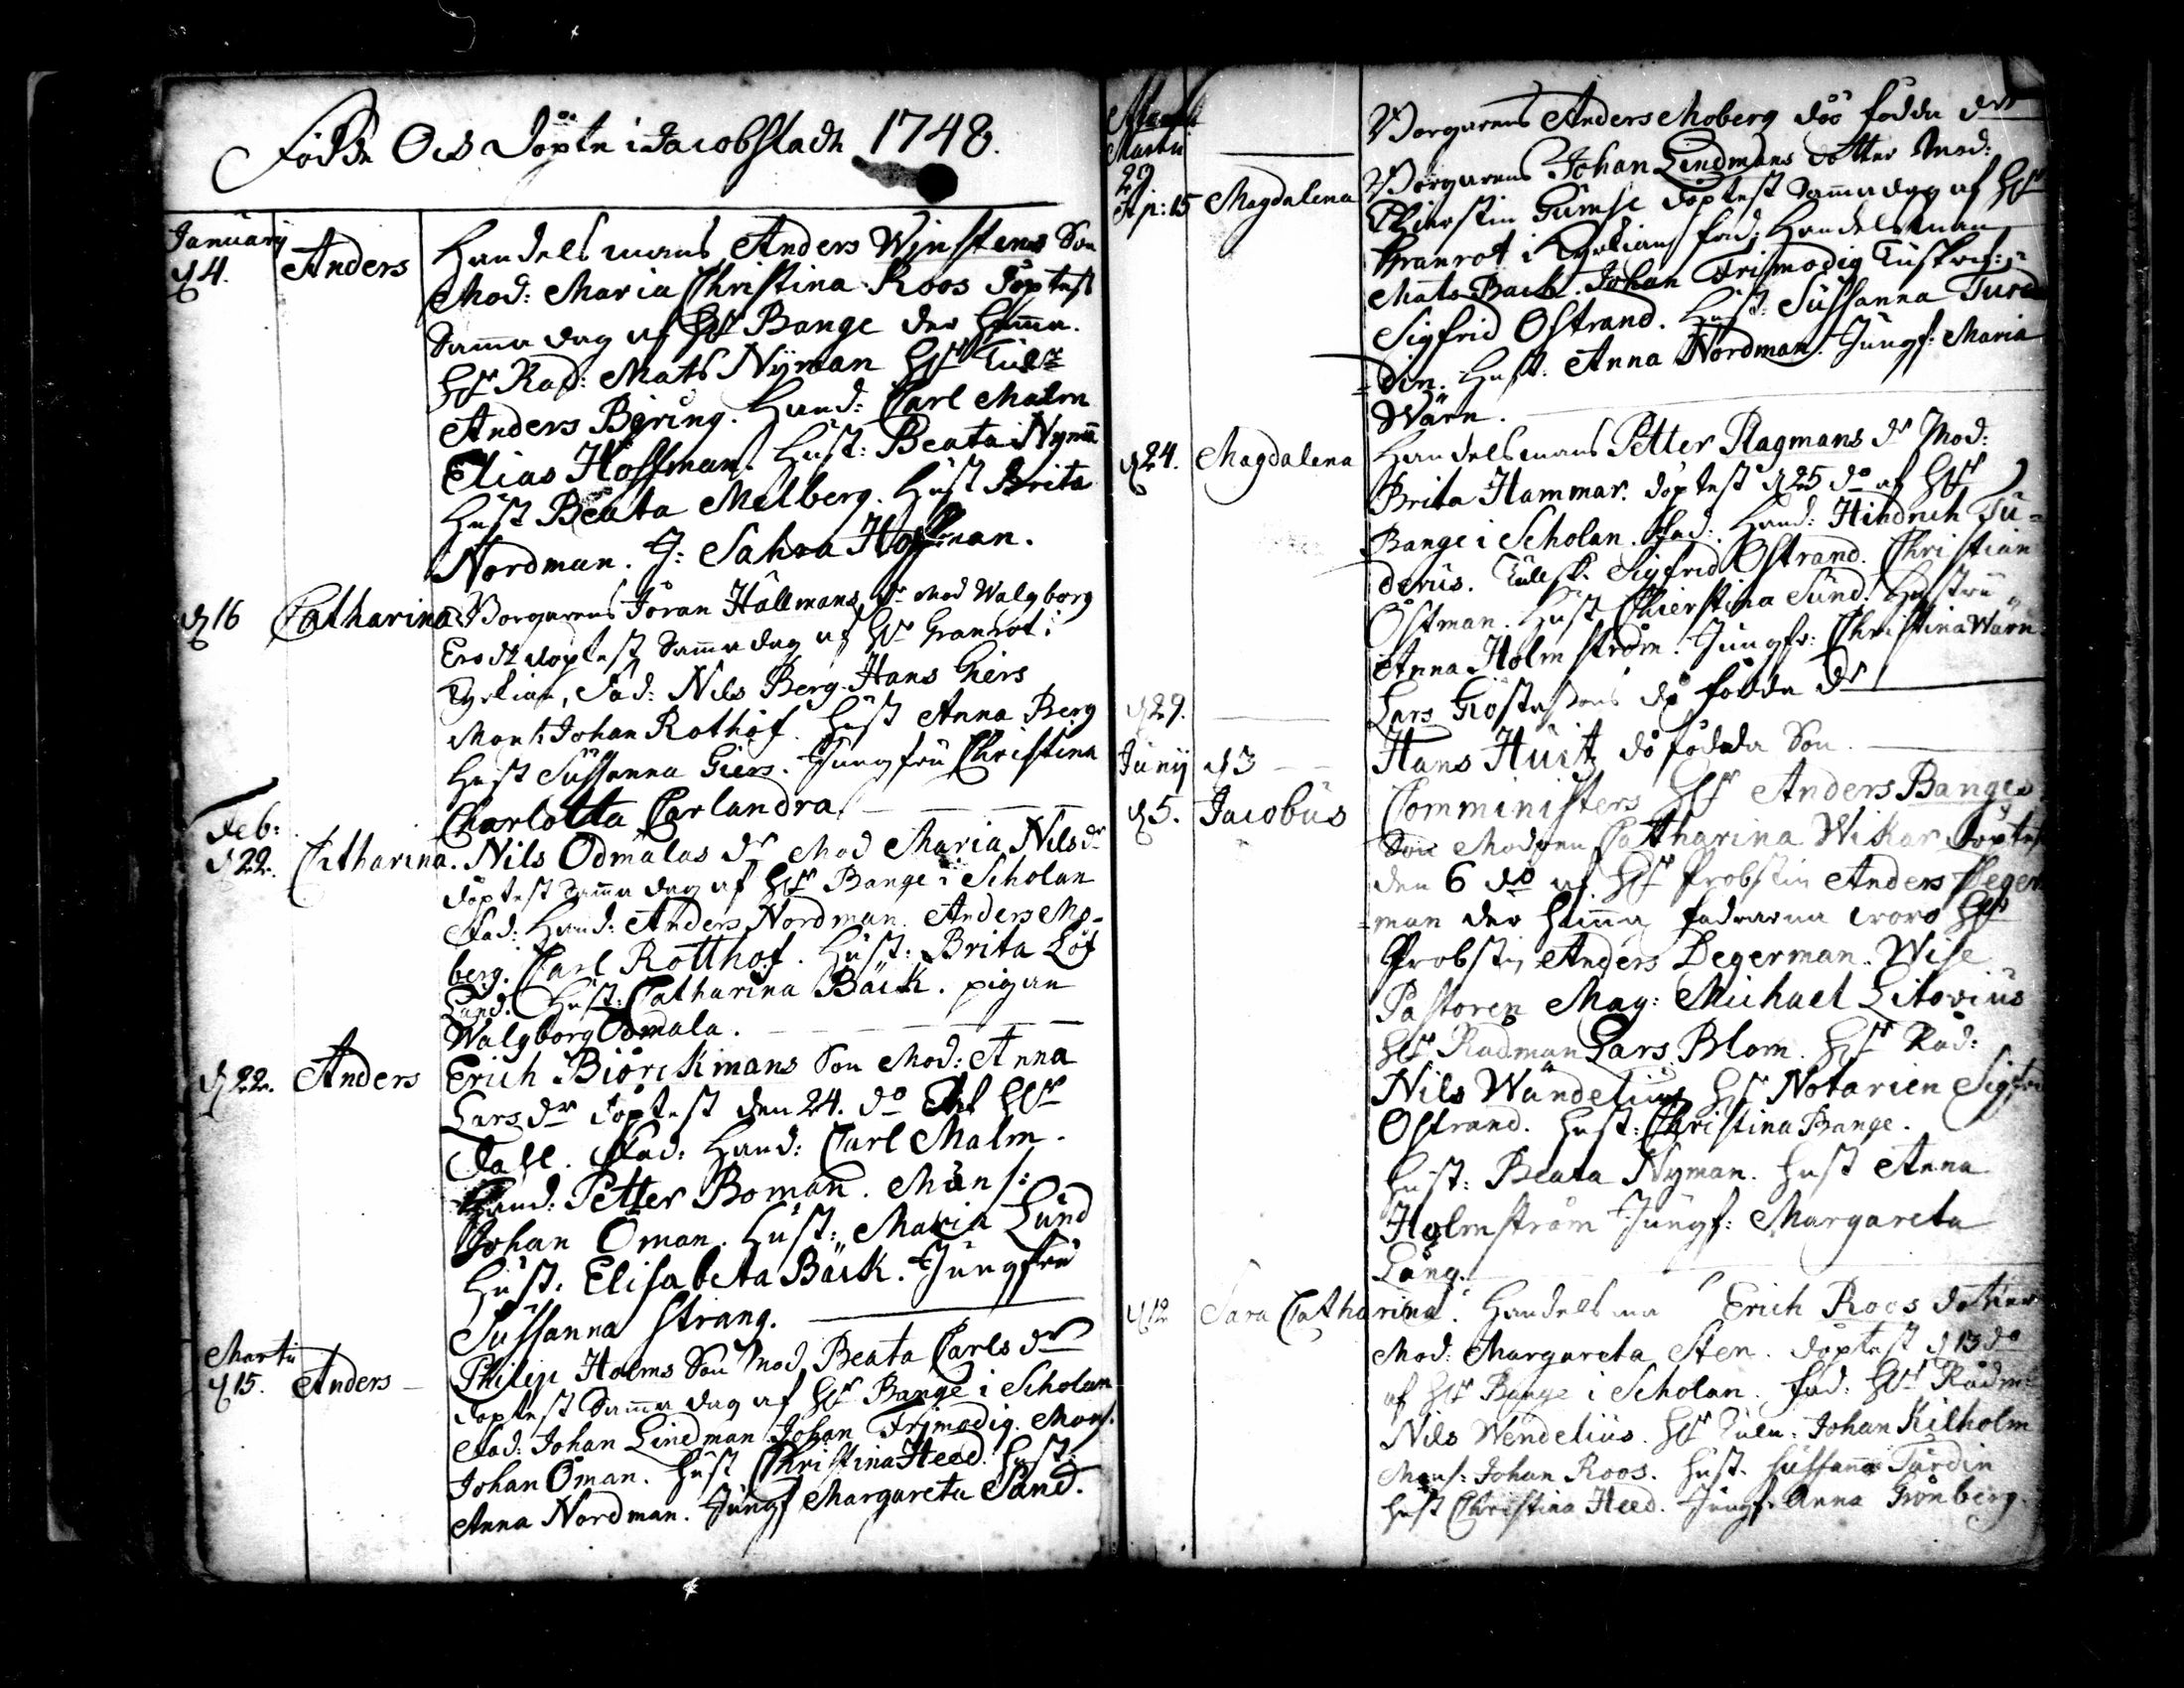 Födde Och Döpte i Jacobstadh 1748.
January
d 4. Anders Handelsmans Anders Wijnstens Son
Mod: Maria Christina Roos döptest
Samma dag af Hr Bange der hemma.
Hr Råd: Mats Nÿman Hr Tull
Anders Büring. Hand: Carl Malm
Elias Hoffman. Hust: Beata Nyman
Hust Beata Melberg. Hust Brita
Nordman. J: Sahra Hoffman.
d 16 Catharina Borgarens Jöran Hällmans dr Mod Walgborg
Ersdr döptest Samma dag af Hr Granrot i
Kyrkian, Fad: Nils Berg. Hans Giers
Mons: Johan Rothof. Hust Anna Berg
Hust Sussanna Giers. Jungfru Christina
Charlotta Carlandra
Feb:
d 22. Catharina. Nils Ödmalas dr Mod Maria Nilsdr
döptest Samma dag af Hr Bange i Scholan
Fad: Hand: Anders Nordman. Anders Mo-
berg. Carl Rotthof. Hust: Brita Löf
Lund. Hust: Catharina Bäck. pigan
Walgborg Ödmala.
d 22. Anders Erich Biörckmans Son Mod: Anna
Larsdr döptest den 24. do Af Hr
Fahl. Fad: Hand: Carl Malm.
Hand: Petter Boman. Mons:
Johan Öman. Hust: Maria Lund
Hust: Elisabeta Bäck. Jungfru
Sussanna Strang.
Marti
d 15. Anders Philip Holms Son Mod Beata Carlsdr
döptest Samma dag af Hr Bange i Scholan
Fad: Johan Lindman Johan Frijmodig. Mons.
Johan Öman. Hust Christina Heed. Hust:
Anna Nordman. Jungf Margareta Sand.
Martii
29 Borgarens Anders Moberg döö födda dr
Ap: 15 Magdalena Borgarens Johan Lindmans dotter Mod:
Chierstin Gumse döptest Samma dag af Hr
Granrot i Kyrkian fad: Handelsman
Mats Back. Johan Frismodig Tullskr:
Sigfrid Östrand. Hust: Sussanna Turd
=din. Hust: Anna Nordman. Jungf: Maria
Wärn.
d 24. Magdalena Handelsmans Petter Plagmans dr Mod:
Brita Hammar. döptest d 25 do af Hr
Bange i Scholan. Fad: Hand: Hindrich Tu=
derus. Tullsk: Sigfrid Östrand. Christian
Östman. Hust Chierstina Sund. Hustru
Anna Holmström. Jungfr: Christina Warn
d 29. Lars Göstassons dö födda dr
Juny d 3 Hans Hurtz dö födda Son
d 5. Jacobus Comministers Hr Anders Banges
Son Modren Catharina Wikar döptes
den 6 do af Hr Probsten Anders Deger
=man der hemma fadrarna woro Hr
Probsten Anders Degerman. Wise
Pastoren Mag: Michael Litovius
Hr Rådman Lars Blom. Hr Råd:
Nils Wändelius Hr Notarien Sigfri
Östrand. Hust: Christina Bange.
Hust: Beata Nyman. Hust Anna
Holmström Jungf: Margareta
Lång.
d 12 Sara Catharina. Handelsma Erich Roos dotter
Mod: Margareta Sten. döptest d 13 do
af Hr Bange i Scholan. Fad: Hr Rådm:
Nils Wendelius. Hr Tuln: Johan Kilholm
Mons: Johan Roos. Hust. Sussanna Turdin
Hust Christina Heed. Jungf: Anna Grönberg.